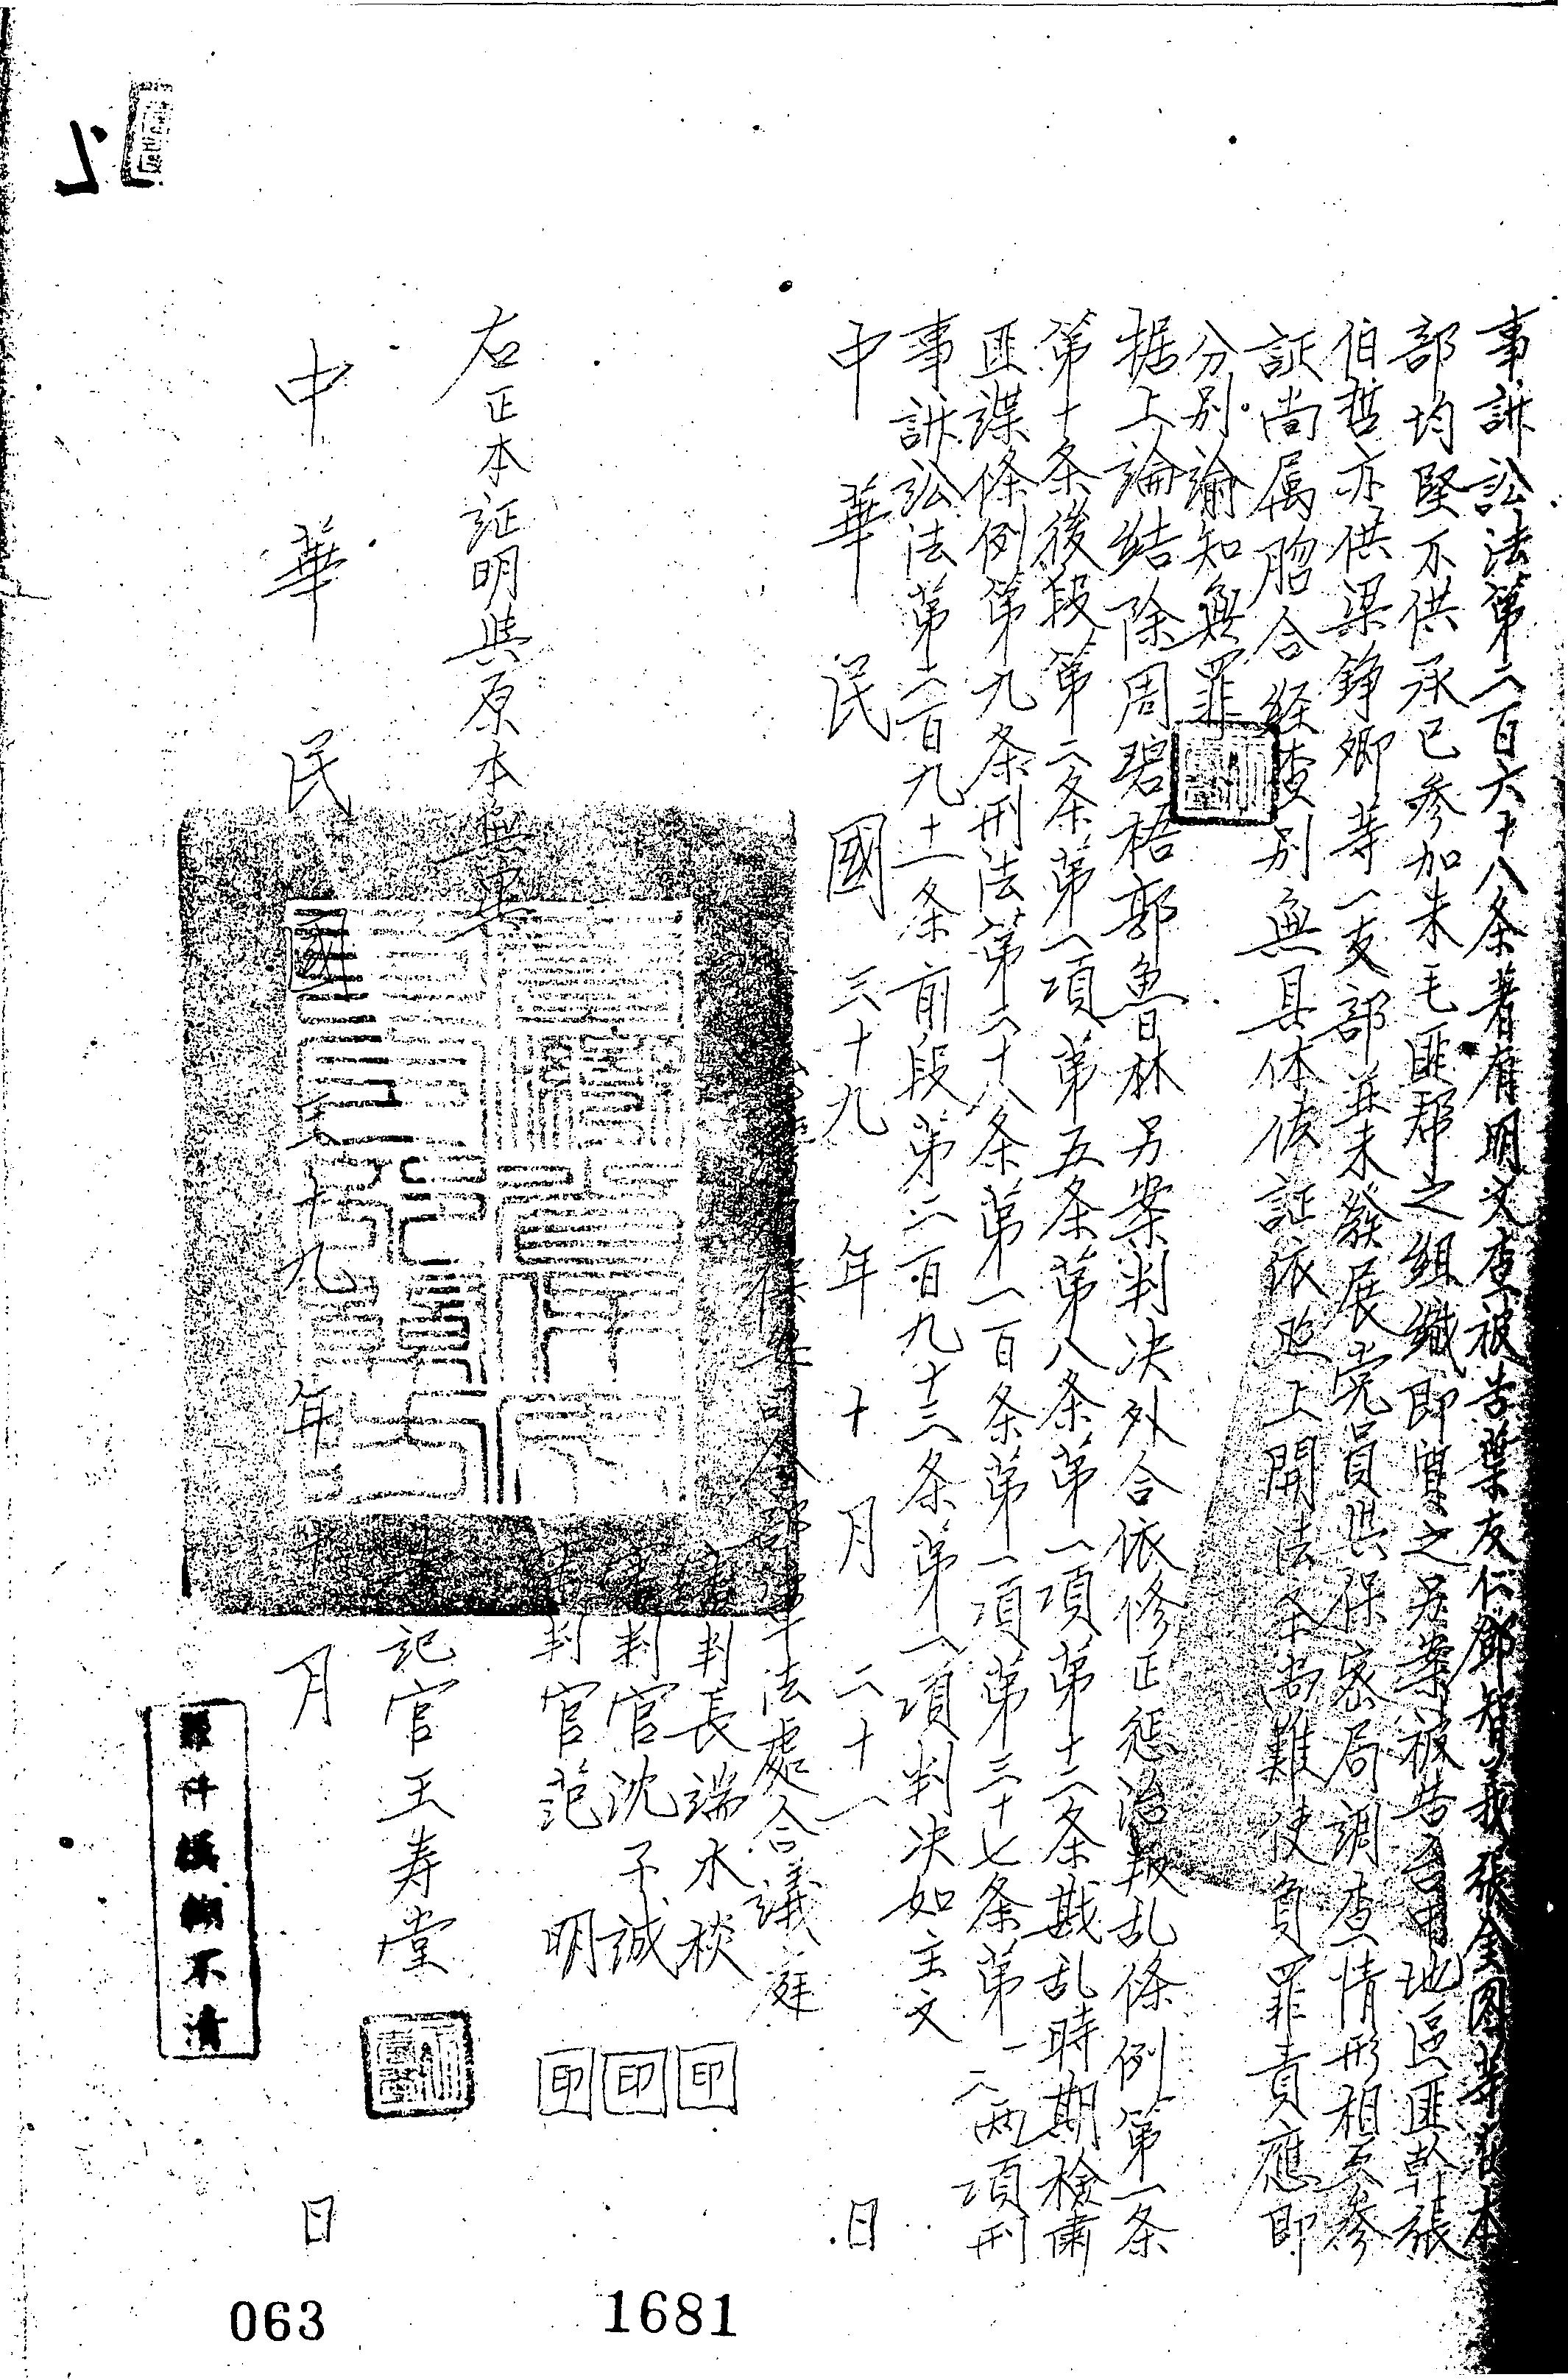 事訴訟法第二百六十八条著有明文查被告葉友仁鄧智義張金图等在本
部均堅不供承已參加朱毛匪帮之組織即質之另案被告台中地區匪幹張
伯哲亦供梁錚卿等一支部並未發展党員與保密局調查情形相互參
証尚属脗合経查別無具体佐証依照上開法条尚難使負罪責應即
分別諭知無罪
据上論結除周碧梧郭魯林另案判决外合依修正惩治叛乱條例第一条
第十条後段第二条第一項第五条第八条第一項第十二条戡乱時期檢肅
匪諜條例第九条刑法第二十八条第一百条第一項第三十七条第一二兩項刑
事訴訟法第二百九十一条前段第二百九十三条第一項判决如主文
中華民國三十九年十月二十一日
保安司令部軍法處合議庭
審判長端木棪 印
審判官沈子誠 印
審判官范明 印
右正本証明與原本無異
書記官王寿堂
中華民國三十九年十月 日
原件模糊不清
063
1681